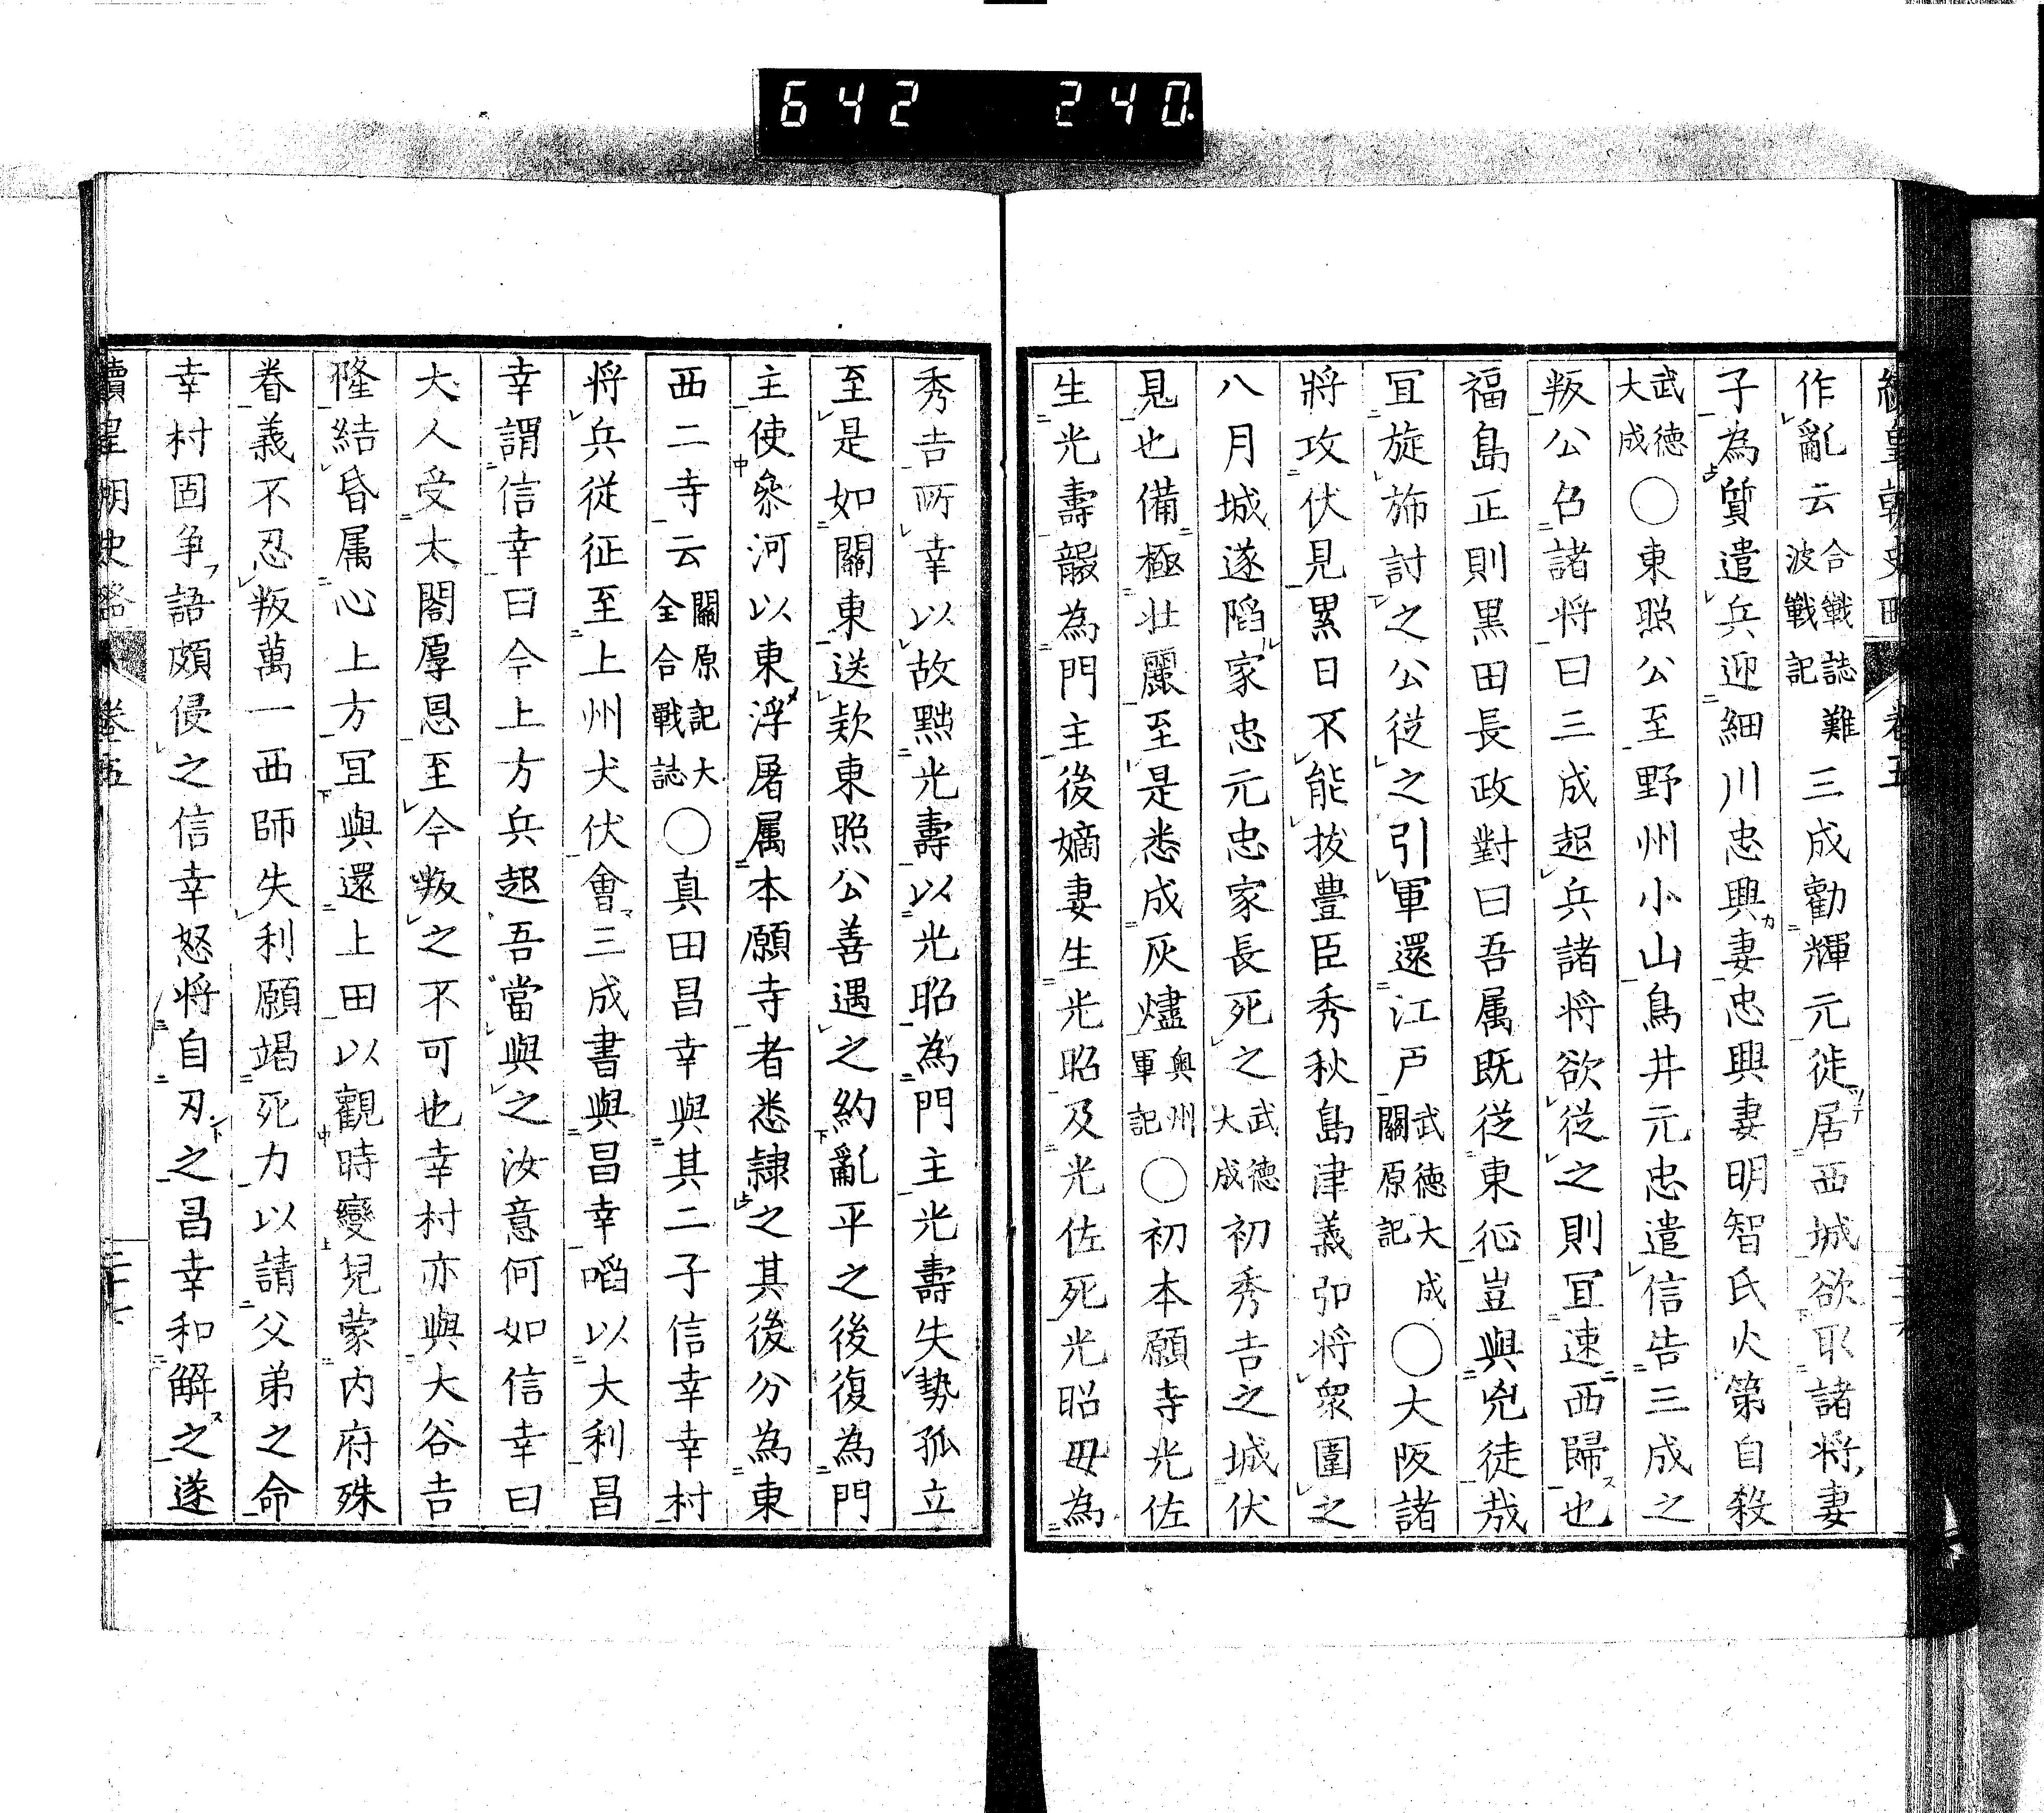 642 240.
續皇朝史略 卷五
作亂云合戰誌難波戰記三成勸輝元徙居西城欲取諸将妻
子為質遣兵迎細川忠興妻忠興妻明智氏火第自殺
武德大成○東照公至野州小山鳥井元忠遣信告三成之
叛公召諸将曰三成起兵諸将欲從之則冝速西歸也
福島正則黒田長政對曰吾属既從東征豈與兇徒哉
冝旋斾討之公從之引軍還江戸武德大成關原記○大阪諸
將攻伏見累日不能拔豊臣秀秋島津義弘将衆圍之
八月城遂陷家忠元忠家長死之武德大成初秀吉之城伏
見也備極壮麗至是悉成灰燼奥州軍記○初本願寺光佐
生光壽嚴為門主後嫡妻生光昭及光佐死光昭母為
秀吉所幸以故黜光壽以光昭為門主光壽失勢孤立
至是如關東送欵東照公善遇之約亂平之後復為門
主使叅河以東浮屠属本願寺者悉隷之其後分為東
西二寺云關原記大全合戰誌○真田昌幸與其二子信幸幸村
将兵從征至上州犬伏會三成書與昌幸啗以大利昌
幸謂信幸曰今上方兵起吾當與之汝意何如信幸曰
大人受太閤厚恩至今叛之不可也幸村亦與大谷吉
隆結昏属心上方冝與還上田以觀時變兒蒙内府殊
眷義不忍叛萬一西師失利願竭死力以請父弟之命
幸村固争語頗侵之信幸怒将自刃之昌幸和解之遂
續皇朝史略 卷五 二十七